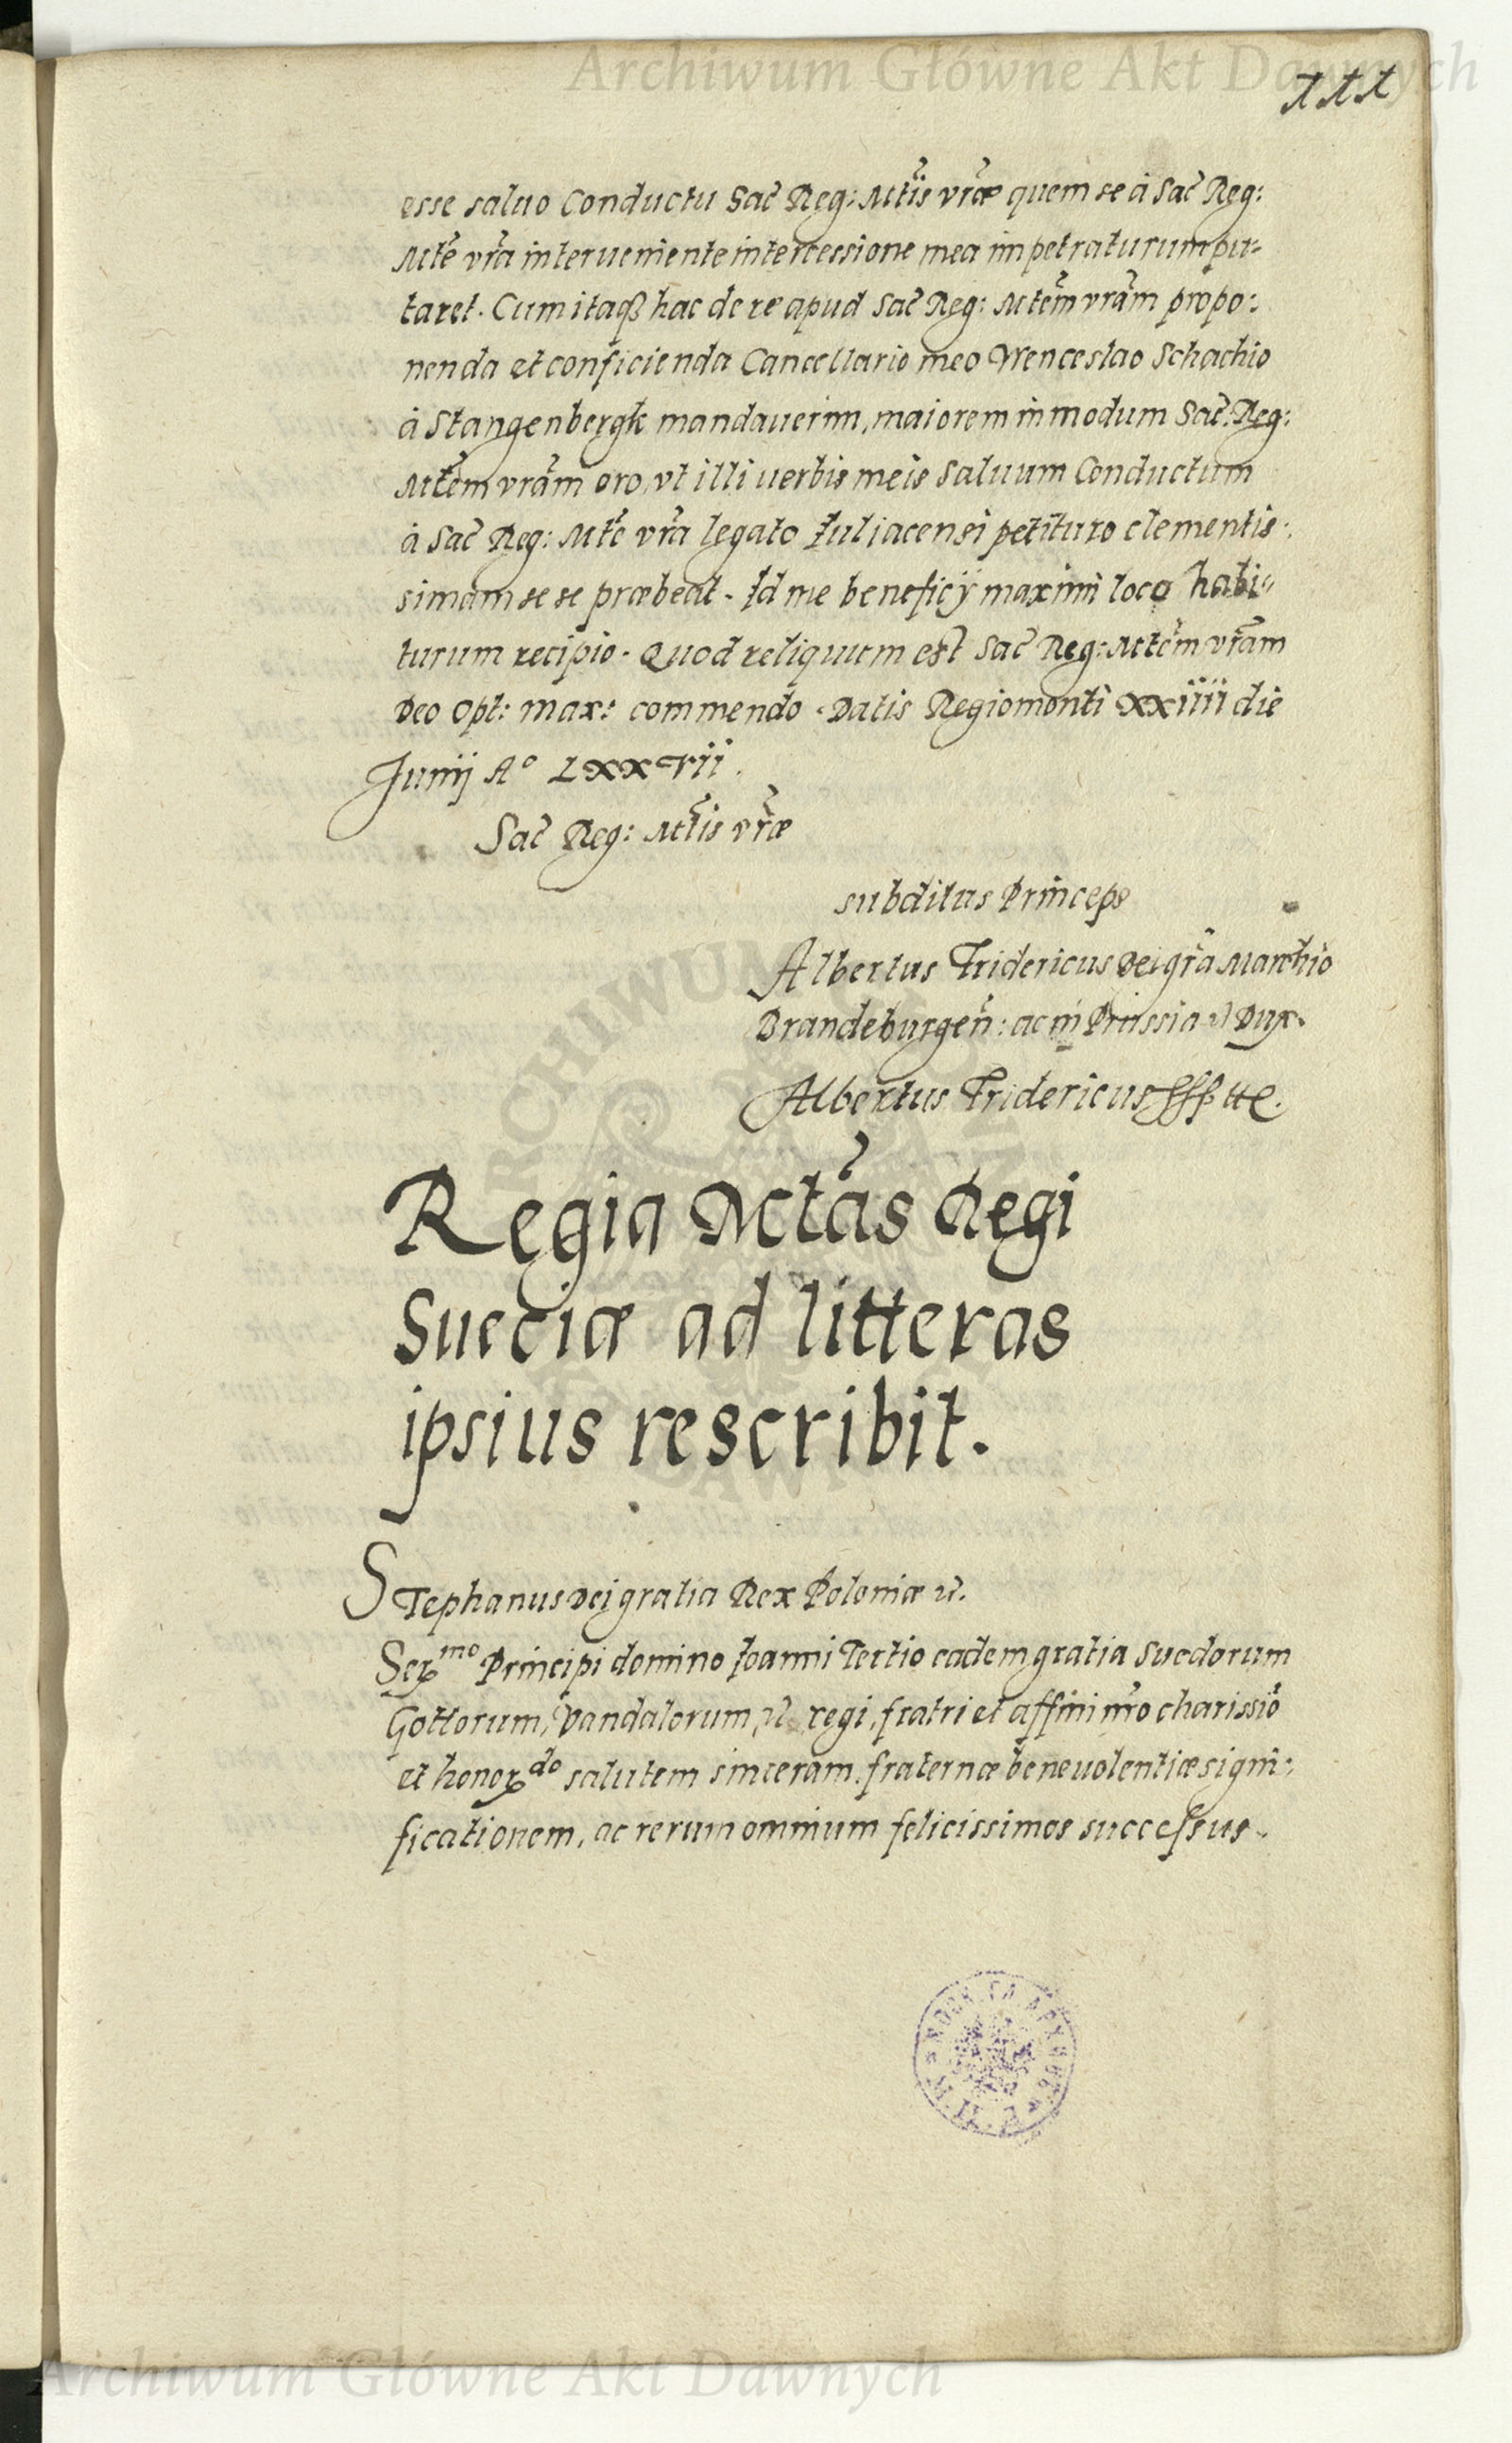 Archiwum Główne Akt Dawnych
111
esse saluo Conductu Sac̃ Reg: Mt̃is vr̃æ quem se à Sac̃ Reg:
Mt̃e vr̃a interueniente intercessione mea impetraturum pu=
taret. Cum itaqꝫ hac de re apud Sac̃ Reg: Mt̃em vr̃am propo:
nenda et conficienda Cancellario meo Wenceslao Schachio
à Stangenbergk mandauerim, maiorem in modum Sac̃. Reg:
Mt̃em vr̃am oro, vt illi uerbis meis Saluum Conductum
à Sac̃ Reg: Mt̃e vr̃a legato Iuliacensi petituro clementis:
simam se se præbeat. Id me beneficij maximi loco habi=
turum recipio. Quod reliquum est Sac̃ Reg: Mt̃em vr̃am
Deo Opt: Max: commendo. Datis Regiomonti XXiiii die
Junij Aº LXXVii.
Sac̃ Reg: Mt̃is vr̃æ
subditus Princeps
Albertus Fridericus Dei gr̃a Marchio
Brandeburgeñ: ac in Prussia ꝛc̃ Dux.
Albertus Fridericus
Regia Mt̃as Regi
Sueciæ ad litteras
ipsius rescribit.
STephanus Dei gratia Rex Poloniæ ꝛc̃.
Serᵐᵒ Principi domino Ioanni Tertio eadem gratia Suedorum
Gottorum, Vandalorum, ꝛc̃ regi, fratri et affini nr̃o charissiõ
et honorᵈᵒ salutem sinceram. fraternæ beneuolentiæ signi:
ficationem, ac rerum omnium felicissimos successus.
Archiwum Główne Akt Dawnych